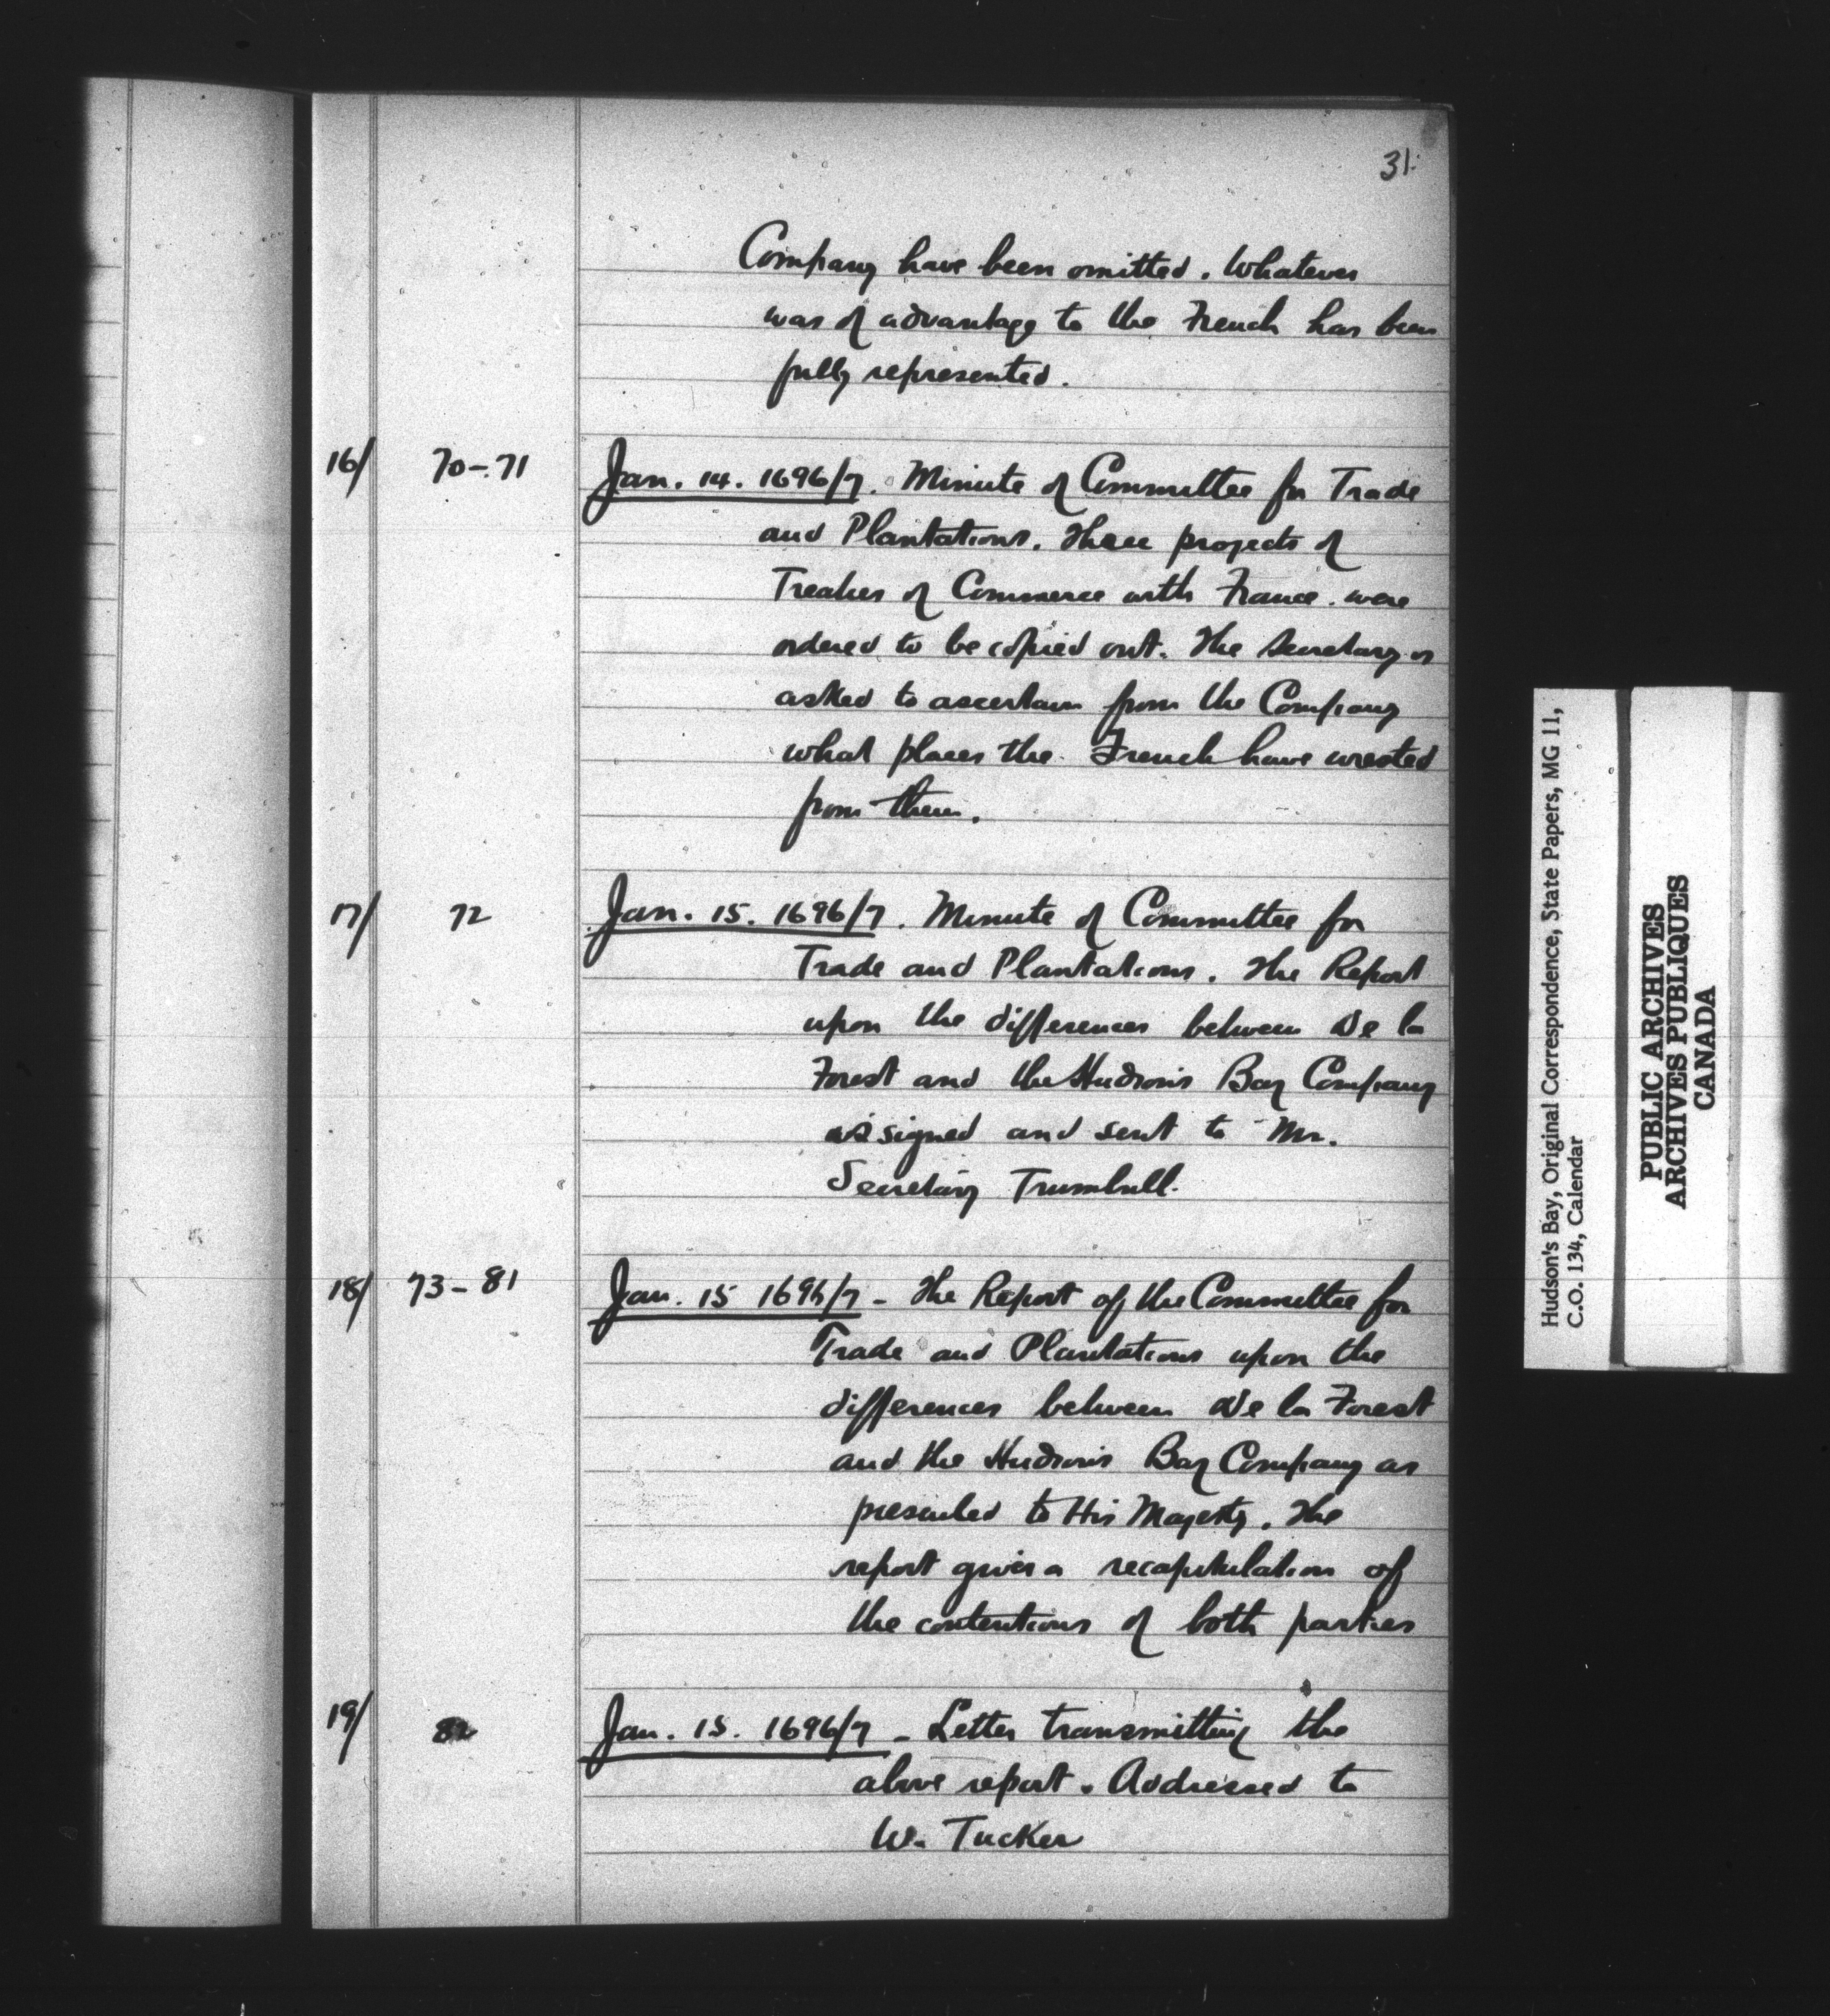 31.
Company have been omitted. Whatever
was of advantage to the French has been
fully represented.
16/ 70-71 Jan. 14. 1696/7. Minute of Committee for Trade
and Plantations. Three projects of
Treaties of Commerce with France were
ordered to be copied out. The Secretary is
asked to ascertain from the Company
what places the French have wrested
from them.
17/ 72 Jan. 15. 1696/7. Minute of Committee for
Trade and Plantations. The Report
upon the differences between De la
Forest and the Hudson's Bay Company
is signed and sent to Mr.
Secretary Trumbull.
18/ 73-81 Jan. 15 1696/7 - The Report of the Committee for
Trade and Plantations upon the
differences between De la Forest
and the Hudson's Bay Company as
presented to His Majesty. The
report gives a recapitulation of
the contentions of both parties
19/ 82 Jan. 15. 1696/7 - Letter transmitting the
above report. Addressed to
W. Tucker
Hudson's Bay, Original Correspondence, State Papers, MG 11,
C.O. 134, Calendar
PUBLIC ARCHIVES
ARCHIVES PUBLIQUES
CANADA